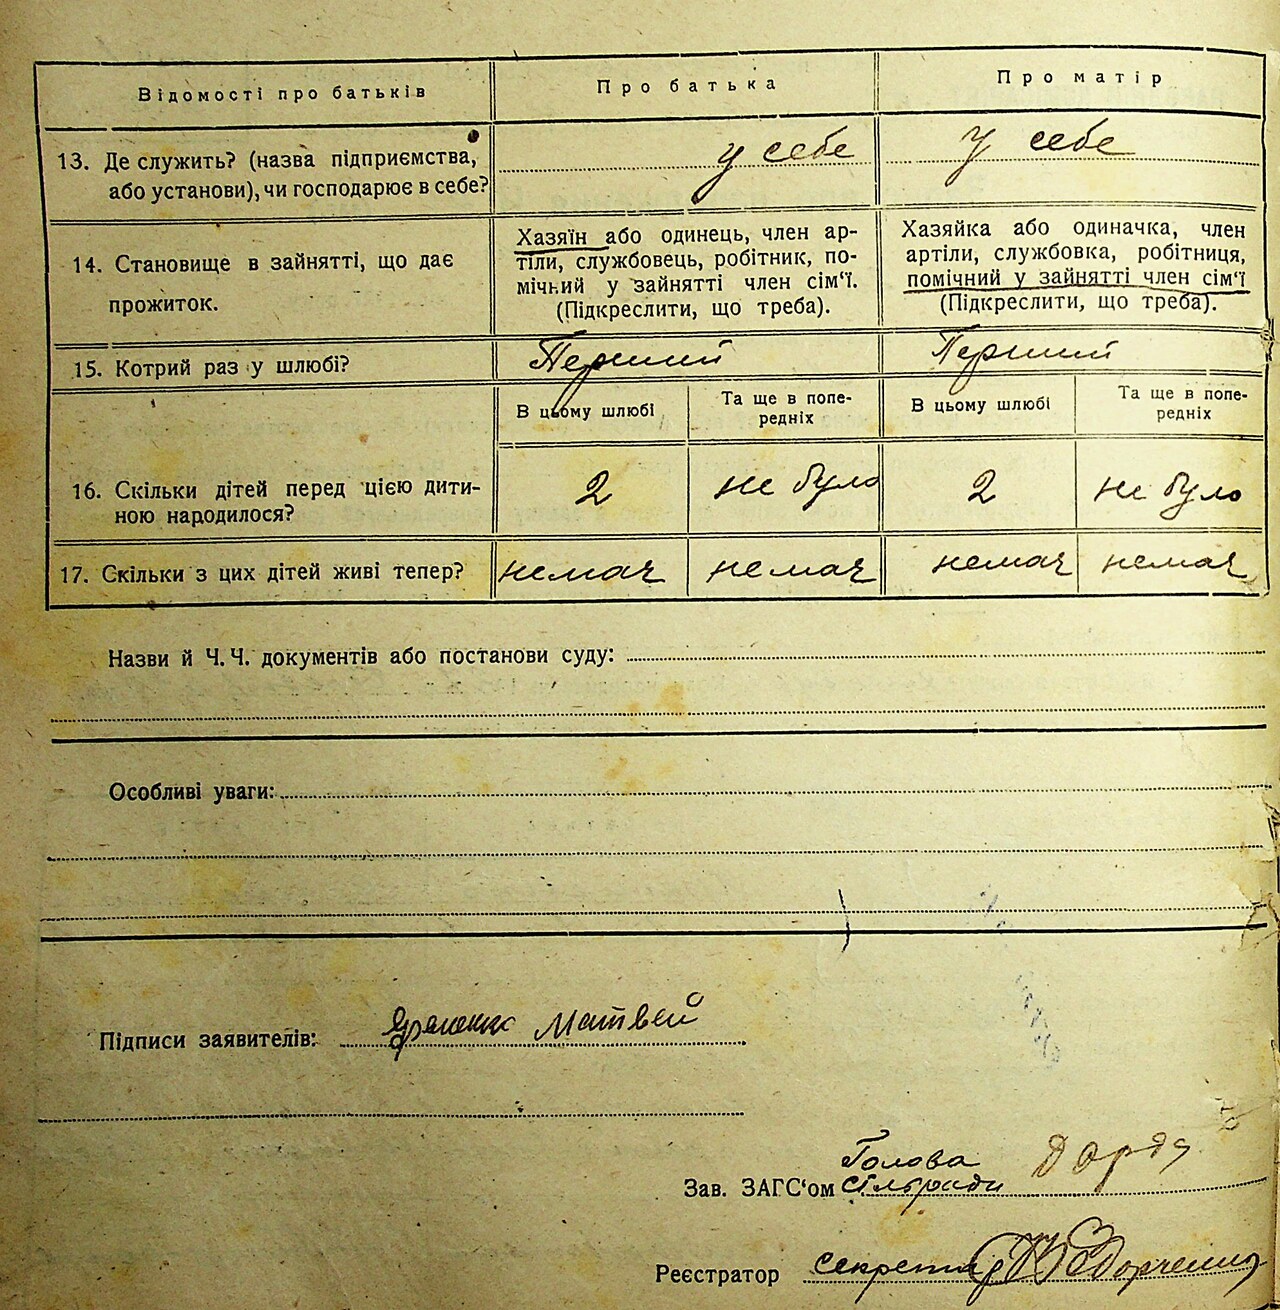 Відомості про батьків Про батька Про матір
13. Де служить? (назва підприємства, або установи), чи господарює в себе? у себе У себе
14. Становище в зайнятті, що дає прожиток.
Хазяїн або одинець, член ар-
тіли, службовець, робітник, по-
мічний у зайнятті член сім'ї.
(Підкреслити, що треба).
Хазяйка або одиначка, член
артіли, службовка, робітниця,
помічний у зайнятті член сім'ї
(Підкреслити, що треба).
15. Котрий раз у шлюбі? Перший Перший
В цьому шлюбі Та ще в попе-редніх В цьому шлюбі Та ще в попе-редніх
16. Скільки дітей перед цією дити-
ною народилося? 2 не було 2 не було
17. Скільки з цих дітей живі тепер? немає немає немає немає
Назви й Ч. Ч. документів або постанови суду:
Особливі уваги:
Підписи заявителів: Матвей
Голова
Зав. ЗАГС'ом сільради
Реєстратор секретар